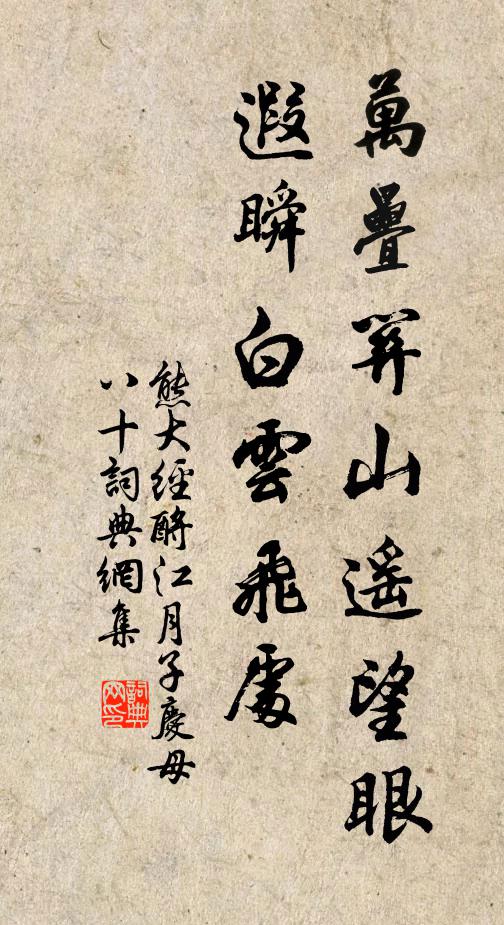 萬疊關山遥望眼
遐瞬白雲飛處
熊大經酹江月子慶母
八十詞典網集
詞典網印